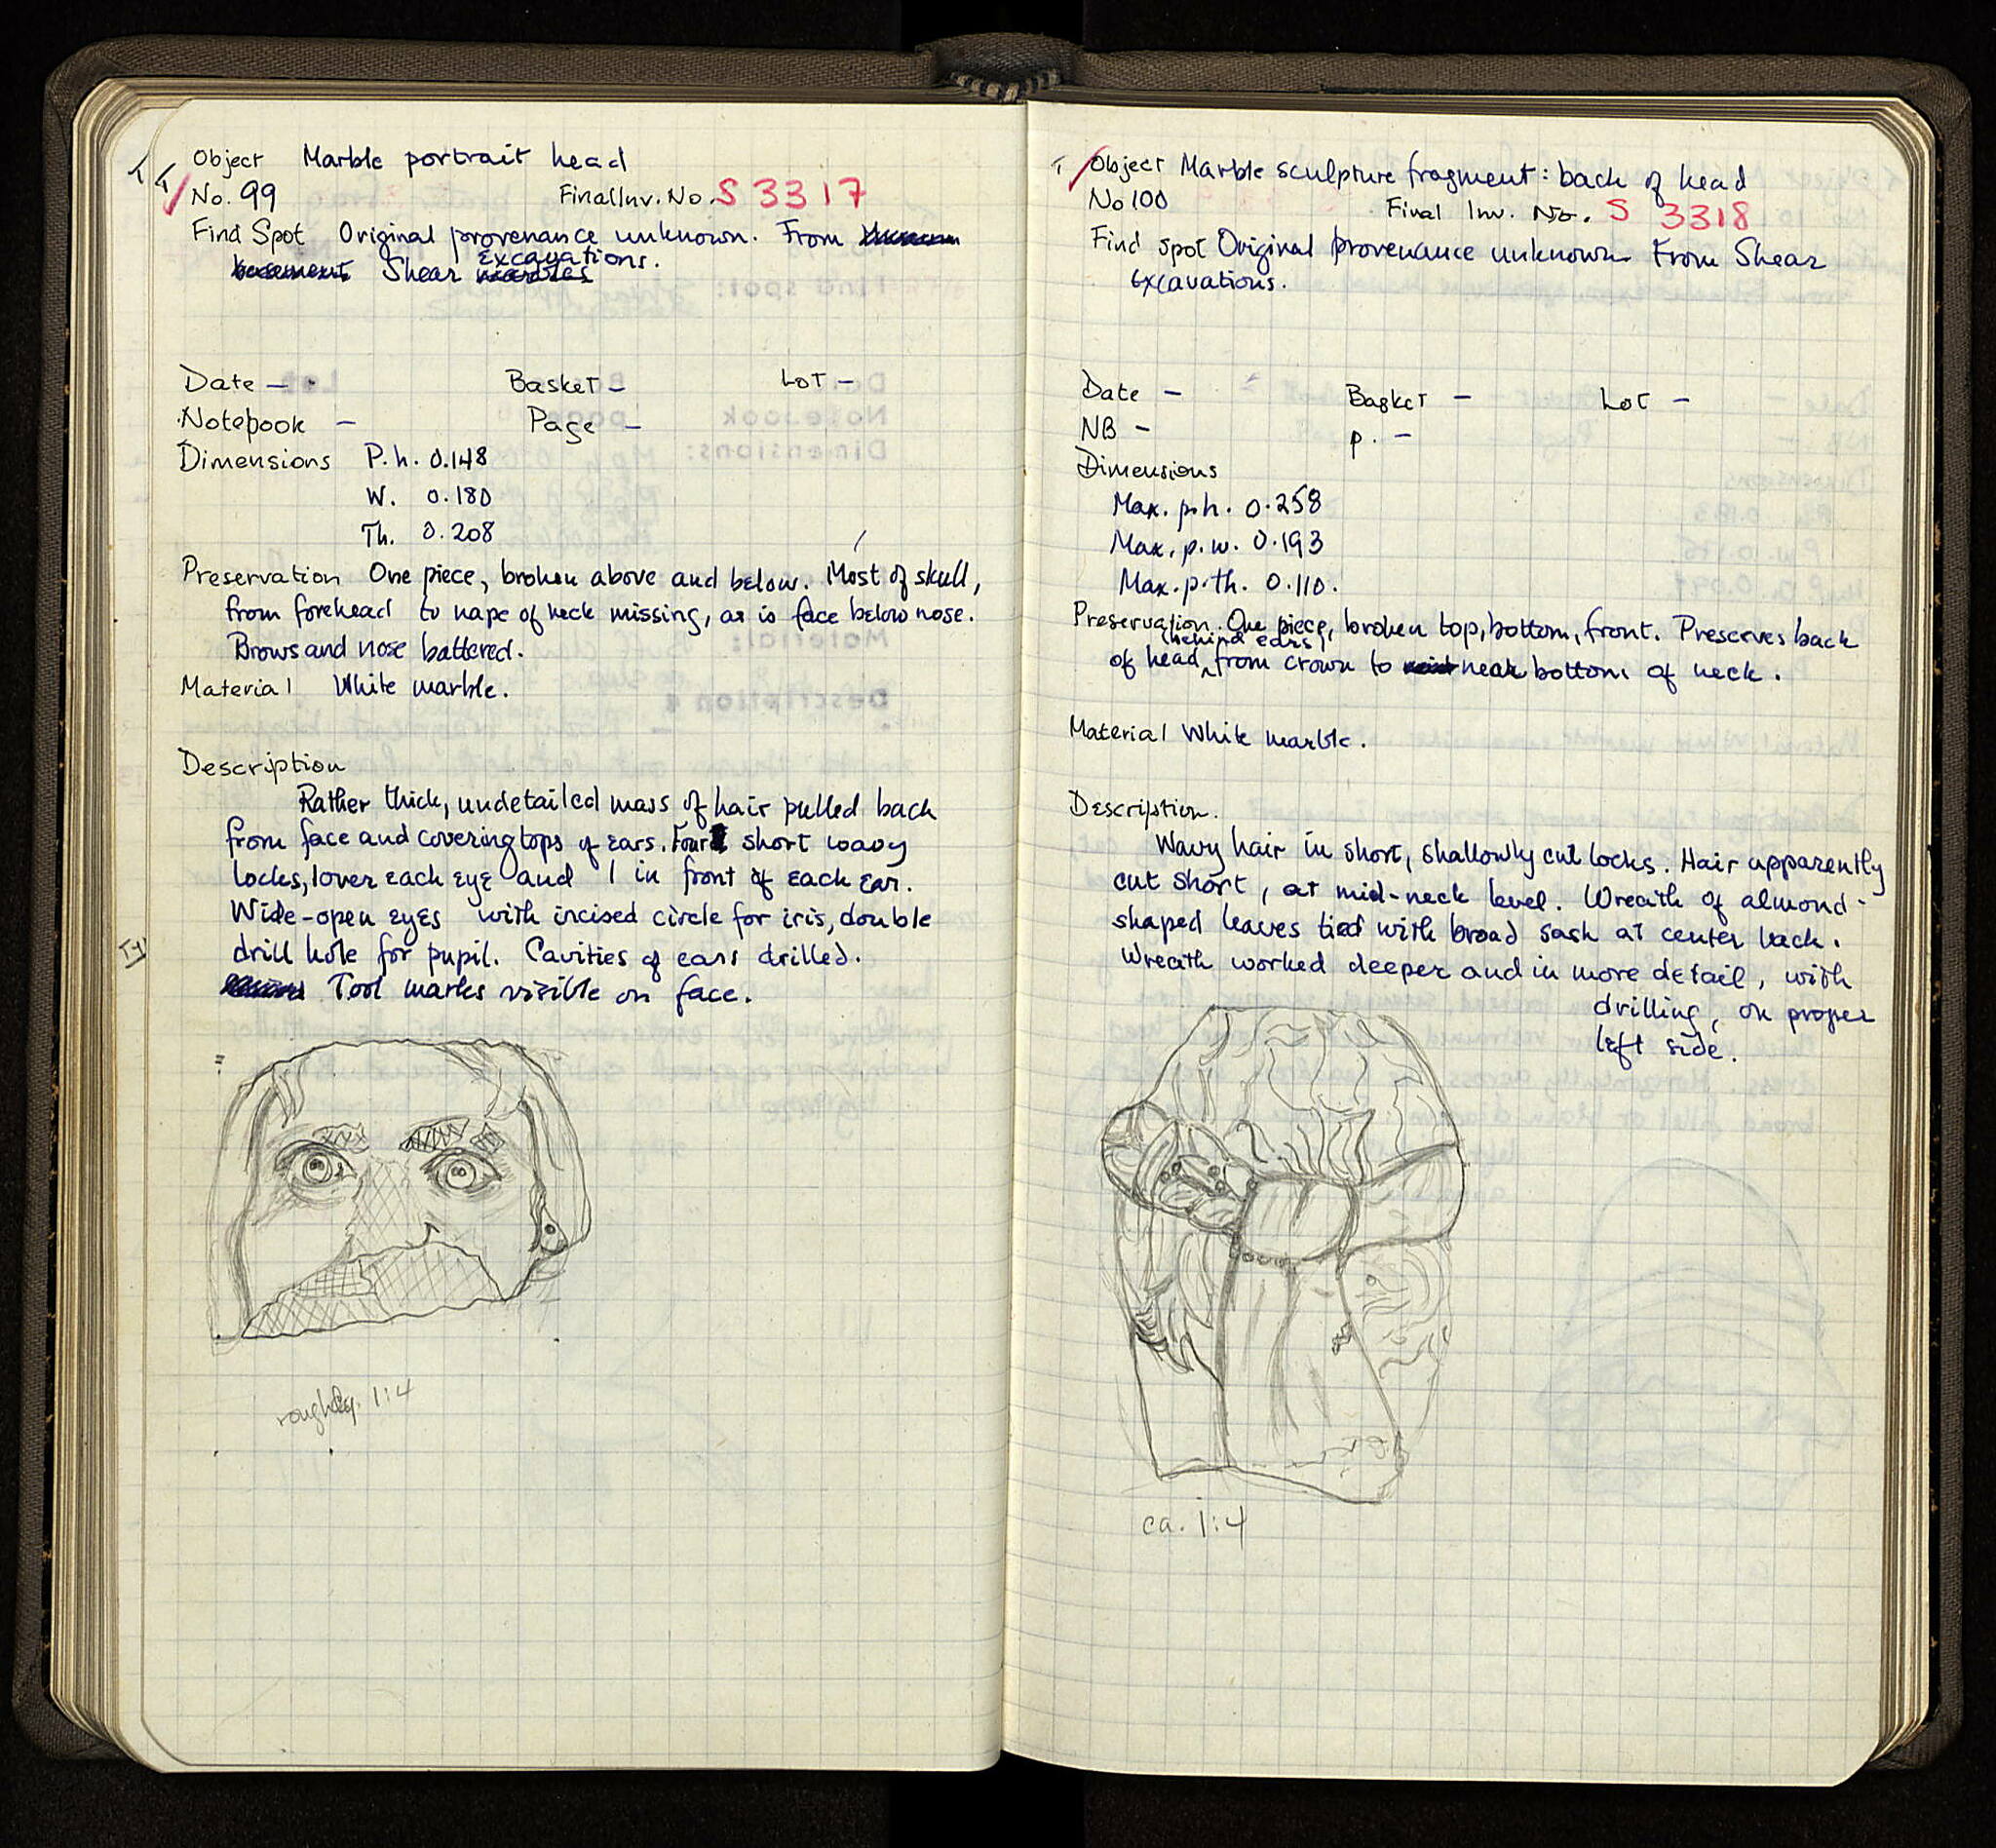 Object Marble portrait head
No. 99 Final Inv. No. S 3317
Find Spot Original provenance unknown. From
Excavations.
basement Shear marbles
Date – Basket – Lot –
Notebook – Page –
Dimensions P.h. 0.148
W. 0.180
Th. 0.208
Preservation One piece, broken above and below. Most of skull,
from forehead to nape of neck missing, as is face below nose.
Brows and nose battered.
Material White marble.
Description
Rather thick, undetailed mass of hair pulled back
from face and covering tops of ears. Four short wavy
locks, 1 over each eye and 1 in front of each ear.
Wide-open eyes with incised circle for iris, double
drill hole for pupil. Cavities of ears drilled.
Tool marks visible on face.
roughly 1:4
T Object Marble sculpture fragment: back of head
No 100 Final Inv. No. S 3318
Find spot Original provenance unknown From Shear
Excavations.
Date – Basket – Lot –
NB – p. –
Dimensions
Max. p.h. 0.258
Max. p.w. 0.193
Max. p.th. 0.110.
Preservation. One piece, broken top, bottom, front. Preserves back
(behind ears)
of head, from crown to near bottom of neck.
Material White marble.
Description.
Wavy hair in short, shallowly cut locks. Hair apparently
cut short, at mid-neck level. Wreath of almond-
shaped leaves tied with broad sash at center back.
Wreath worked deeper and in more detail, with
drilling, on proper
left side.
ca. 1:4